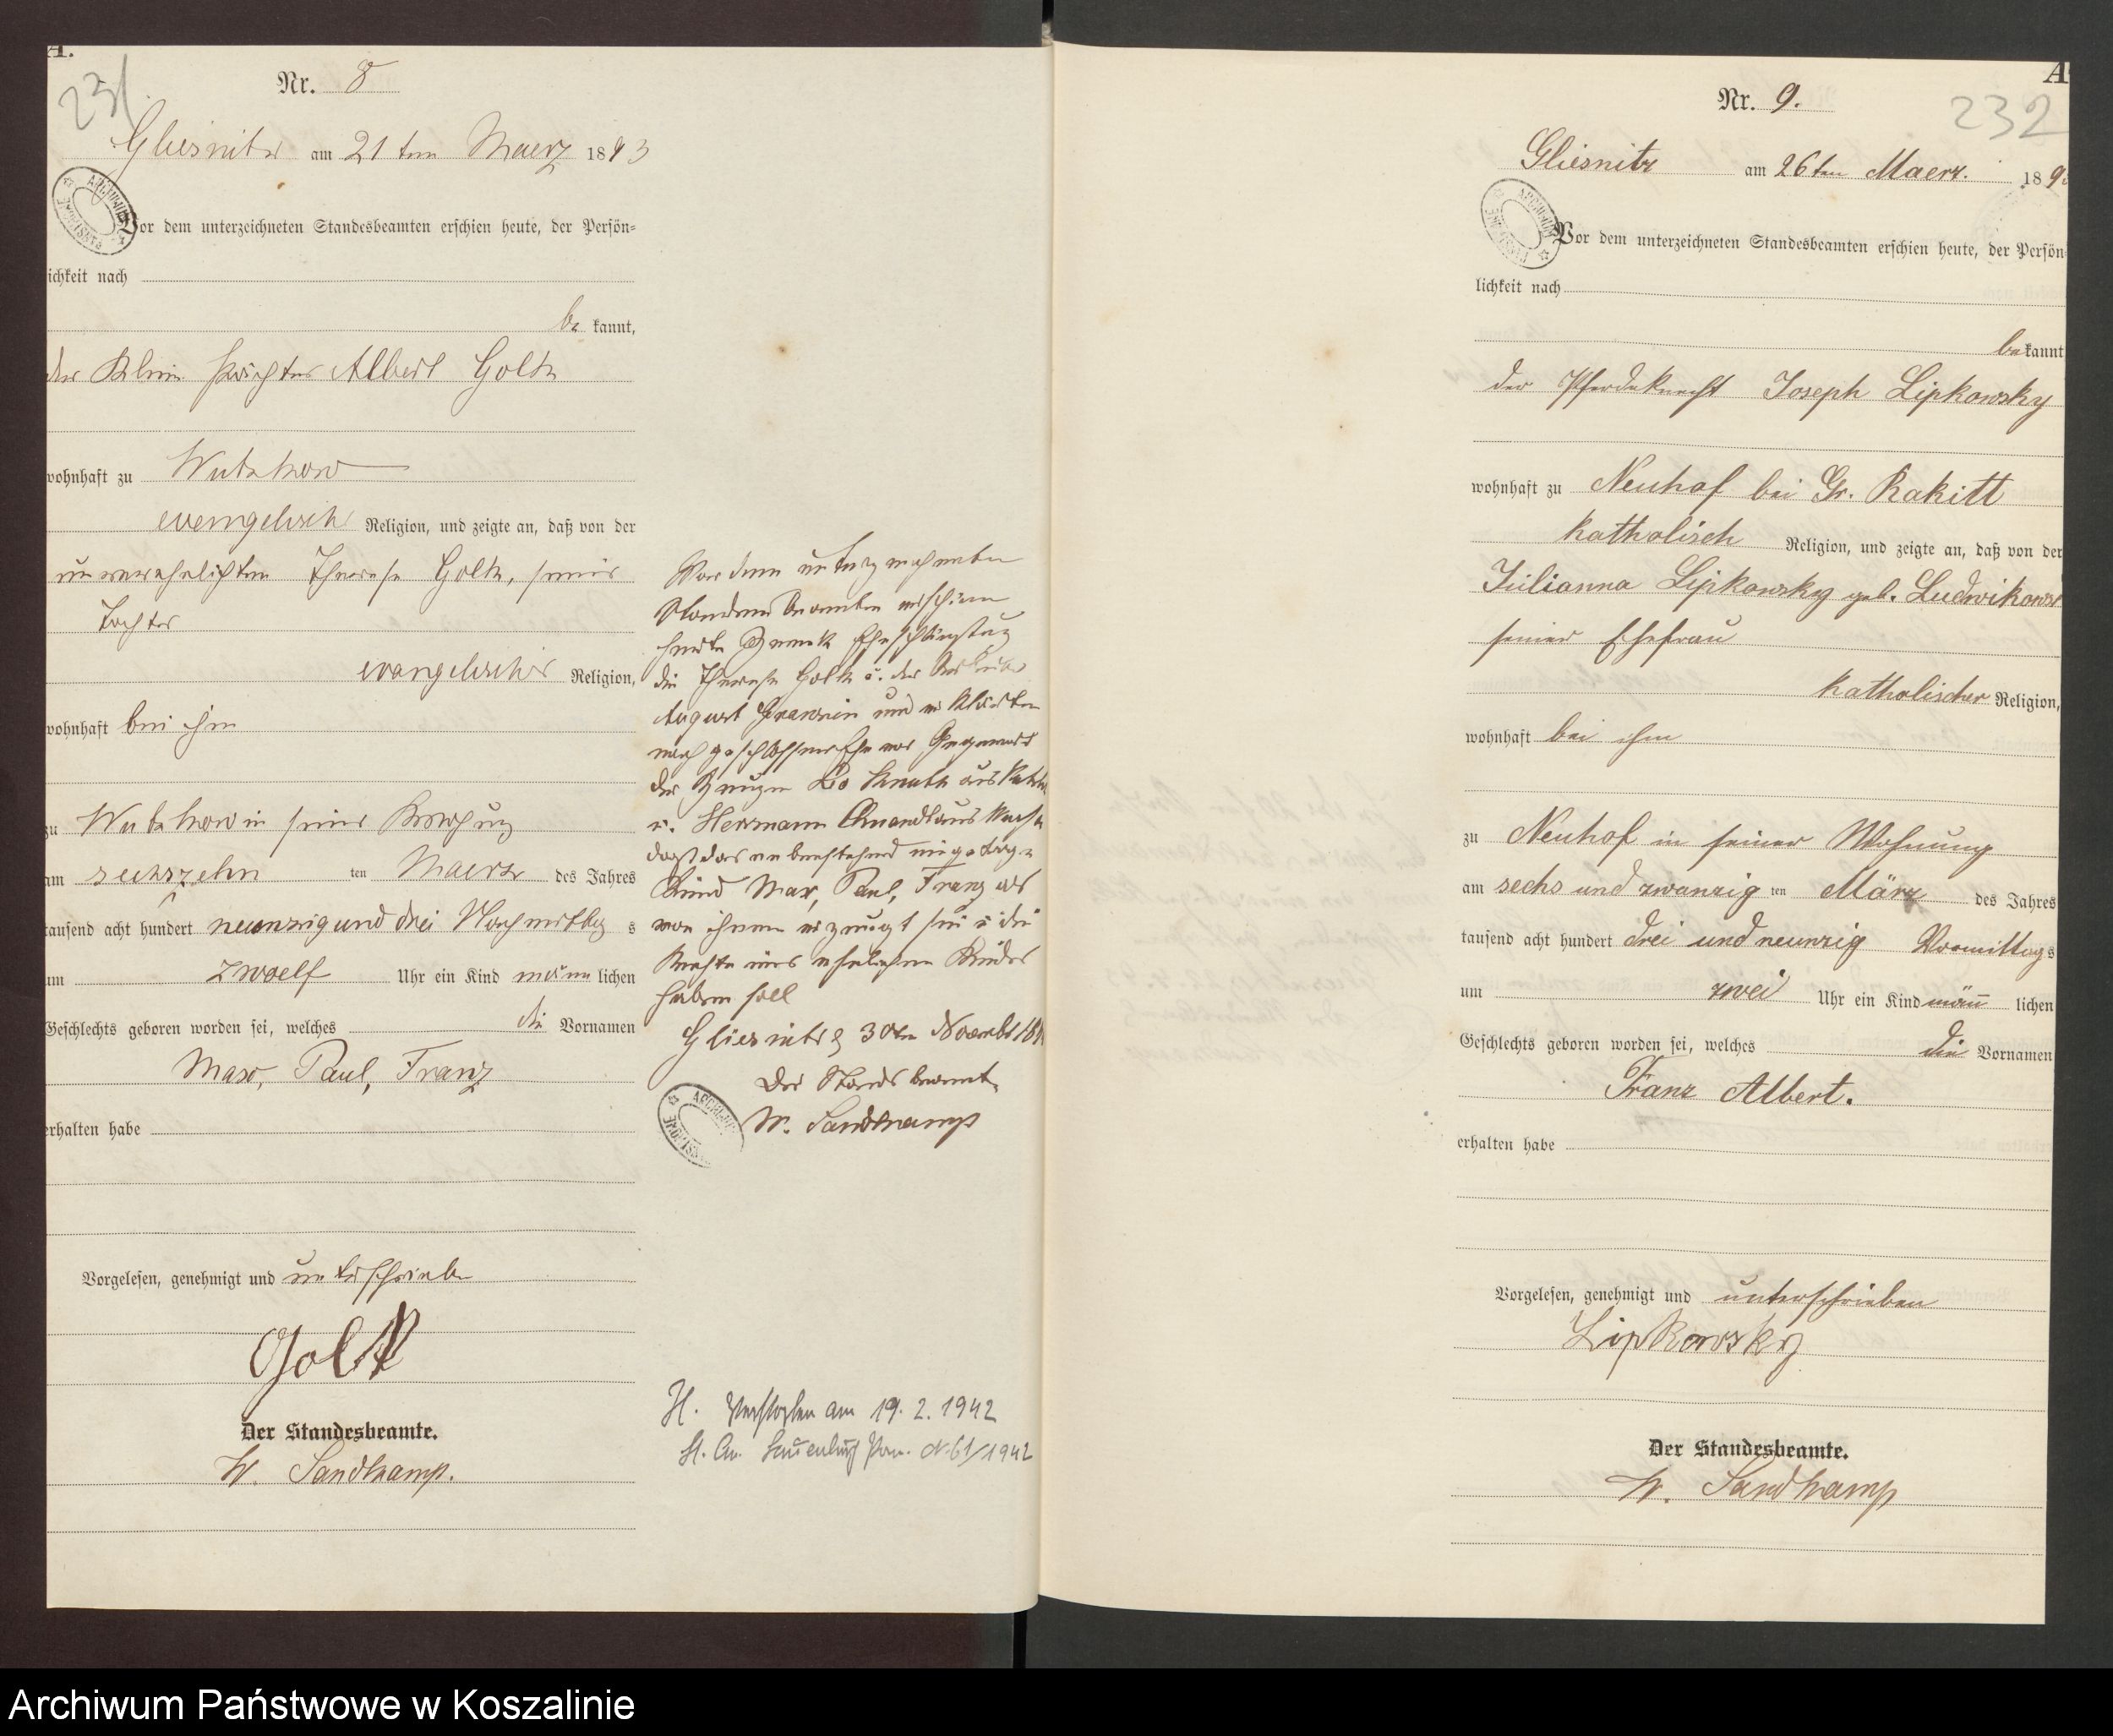 A.
231.
Nr. 8
Gliesnitz am 21 ten Maerz 1893
Vor dem unterzeichneten Standesbeamten erschien heute, der Persön-
lichkeit nach
be kannt,
der Klein Pächter Albert Goltz
wohnhaft zu Wutzkow
evangelisch Religion, und zeigte an, daß von der
unverehelichten Therese Goltz, seiner
Tochter
evangelischer Religion,
wohnhaft bei ihm
zu Wutzkow in seiner Wohnung
am sechszehn ten Maerz des Jahres
tausend acht hundert neunzig und drei Nachmittag s
um zwoelf Uhr ein Kind maenn lichen
Geschlechts geboren worden sei, welches die Vornamen
Max, Paul, Franz
erhalten habe
Vorgelesen, genehmigt und unterschrieben
Goltz
Der Standesbeamte.
W. Sandkamp.
Vor dem unterzeichneten
Standesbeamten erschienen
heute Zweck Eheschließung
die Therese Goltz u. der
August und erklärten
nach geschlossener Ehe vor Gegenwart
der Zeugen Leo aus
u. Herrmann aus
daß das nebenstehend eingetrage
Kind Max, Paul, Franz als
von ihnen erzeugt sei u die
Rechte eines ehelichen Kindes
haben soll
Gliesnitz d 30ten Novembr
Der Standesbeamte
W. Sandkamp
ARCHIWUM
H. Verstorben am 19. 2. 1942
St. A. Lauenburg Pom. N. 61/1942
A
232
Nr. 9.
Gliesnitz am 26ten Maerz. 189
Vor dem unterzeichneten Standesbeamten erschien heute, der Persön
lichkeit nach
bekannt
der Pferdeknecht Joseph Lipkowsky
wohnhaft zu Neuhof bei Gr. Rakitt
katholisch Religion, und zeigte an, daß von der
Julianna Lipkowsky geb. Ludwikows
seiner Ehefrau
katholischer Religion,
wohnhaft bei ihm
zu Neuhof in seiner Wohnung
am sechs und zwanzig ten März des Jahres
tausend acht hundert drei und neunzig Vormittag s
um zwei Uhr ein Kind männ lichen
Geschlechts geboren worden sei, welches die Vornamen
Franz Albert.
erhalten habe
Vorgelesen, genehmigt und unterschrieben
Lipkowsky
Der Standesbeamte.
W. Sandkamp
Archiwum Państwowe w Koszalinie